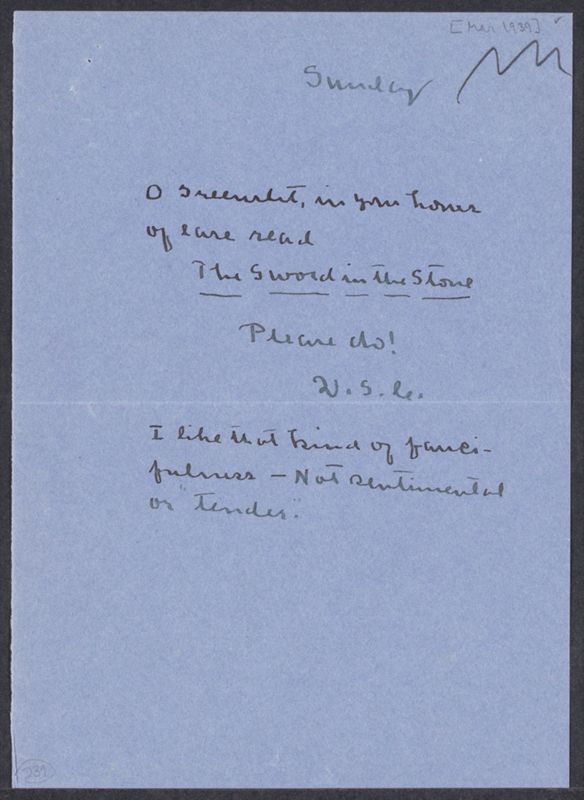 [Mar 1939]
Sunday
O Greenslet, in your hours
of ease read
The Sword in the Stone
Please do!
W. S. C.
I like that kind of fanci-
fulness — Not sentimental
or "tender".
239